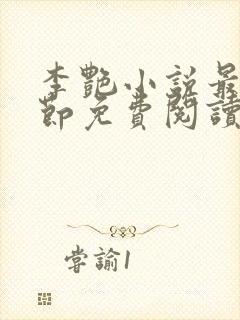 李艷小說最
節免費閱讀
嘗諭1